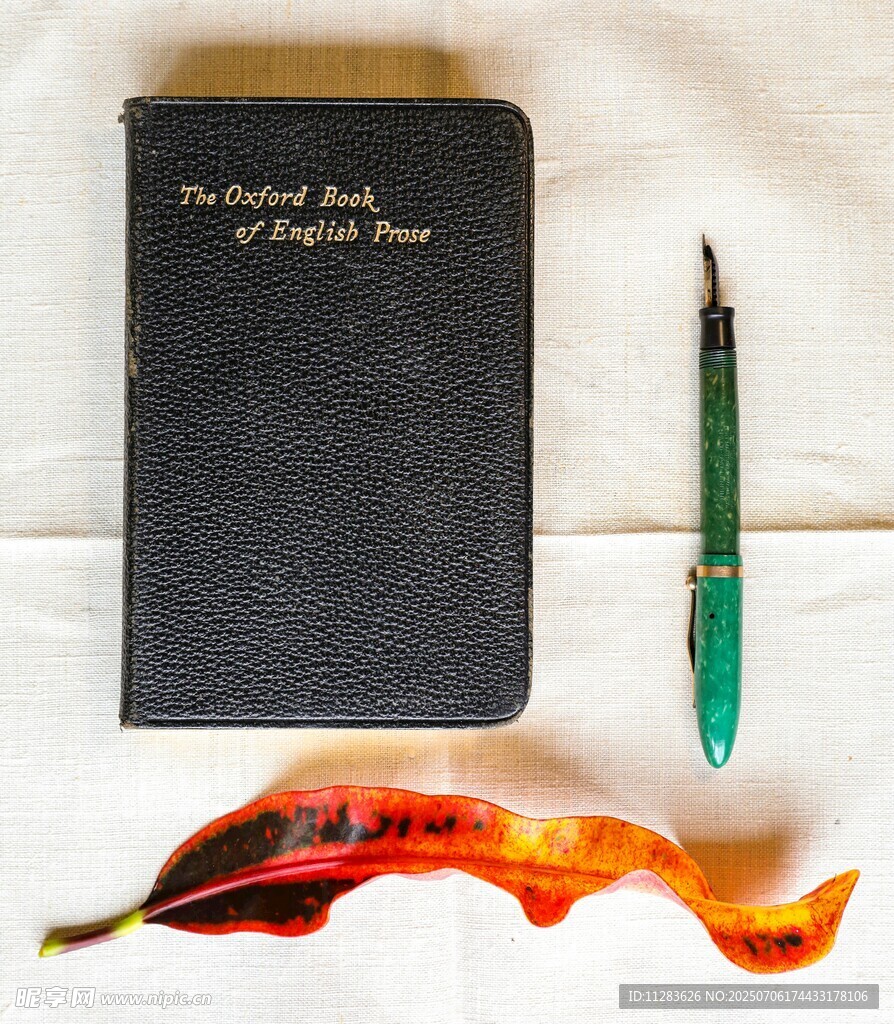 The Oxford Book
of English Prose
昵享网 www.nipic.cn
ID:11283626 NO:20250706174433178106